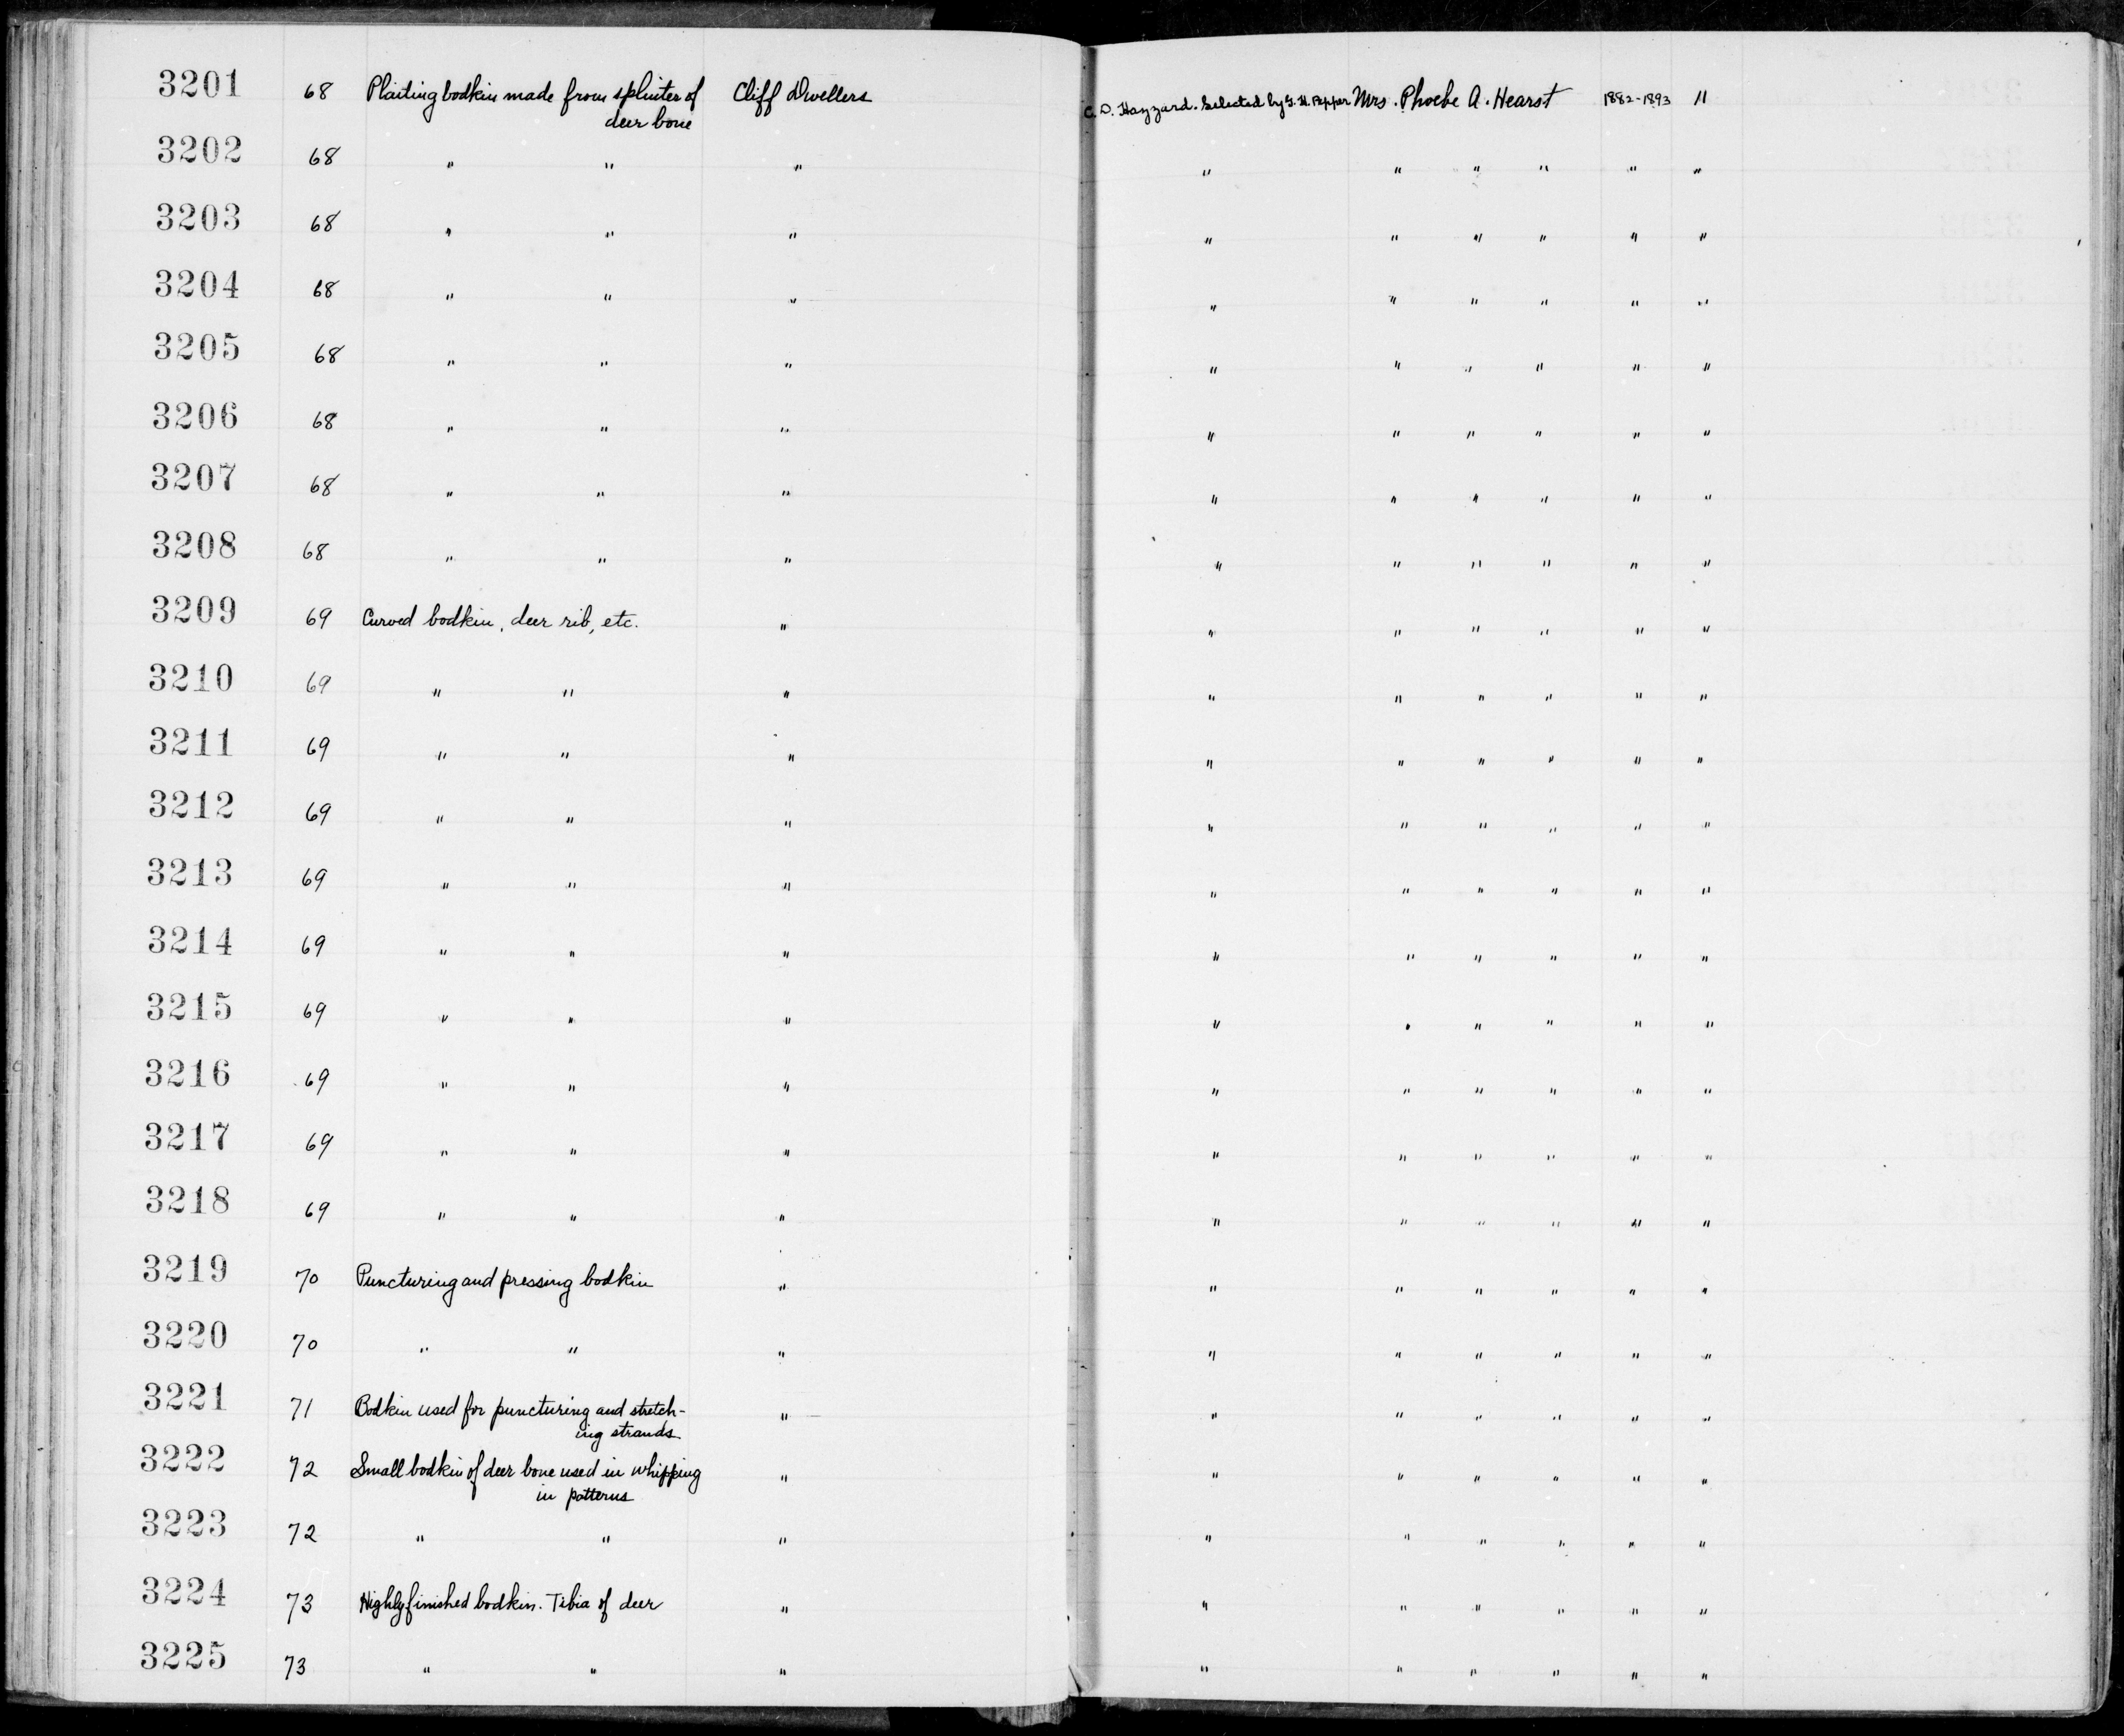 3201 68 Plaiting bodkin made from splinter of Cliff Dwellers C. D. Hazzard. Selected by G. H. Pepper Mrs. Phoebe A. Hearst 1882-1893 11
deer bone
3202 68 " " " " " " " " "
3203 68 " " " " " " " " "
3204 68 " " " " " " " " "
3205 68 " " " " " " " " "
3206 68 " " " " " " " " "
3207 68 " " " " " " " " "
3208 68 " " " " " " " " "
3209 69 Curved bodkin, deer rib, etc. " " " " " " "
3210 69 " " " " " " " " "
3211 69 " " " " " " " " "
3212 69 " " " " " " " " "
3213 69 " " " " " " " " "
3214 69 " " " " " " " " "
3215 69 " " " " " " " " "
3216 69 " " " " " " " " "
3217 69 " " " " " " " " "
3218 69 " " " " " " " " "
3219 70 Puncturing and pressing bodkin " " " " " " "
3220 70 " " " " " " " " "
3221 71 Bodkin used for puncturing and stretch- " " " " " " "
ing strands
3222 72 Small bodkin of deer bone used in whipping " " " " " " "
in patterns
3223 72 " " " " " " " " "
3224 73 Highly finished bodkin. Tibia of deer " " " " " " "
3225 73 " " " " " " " " "